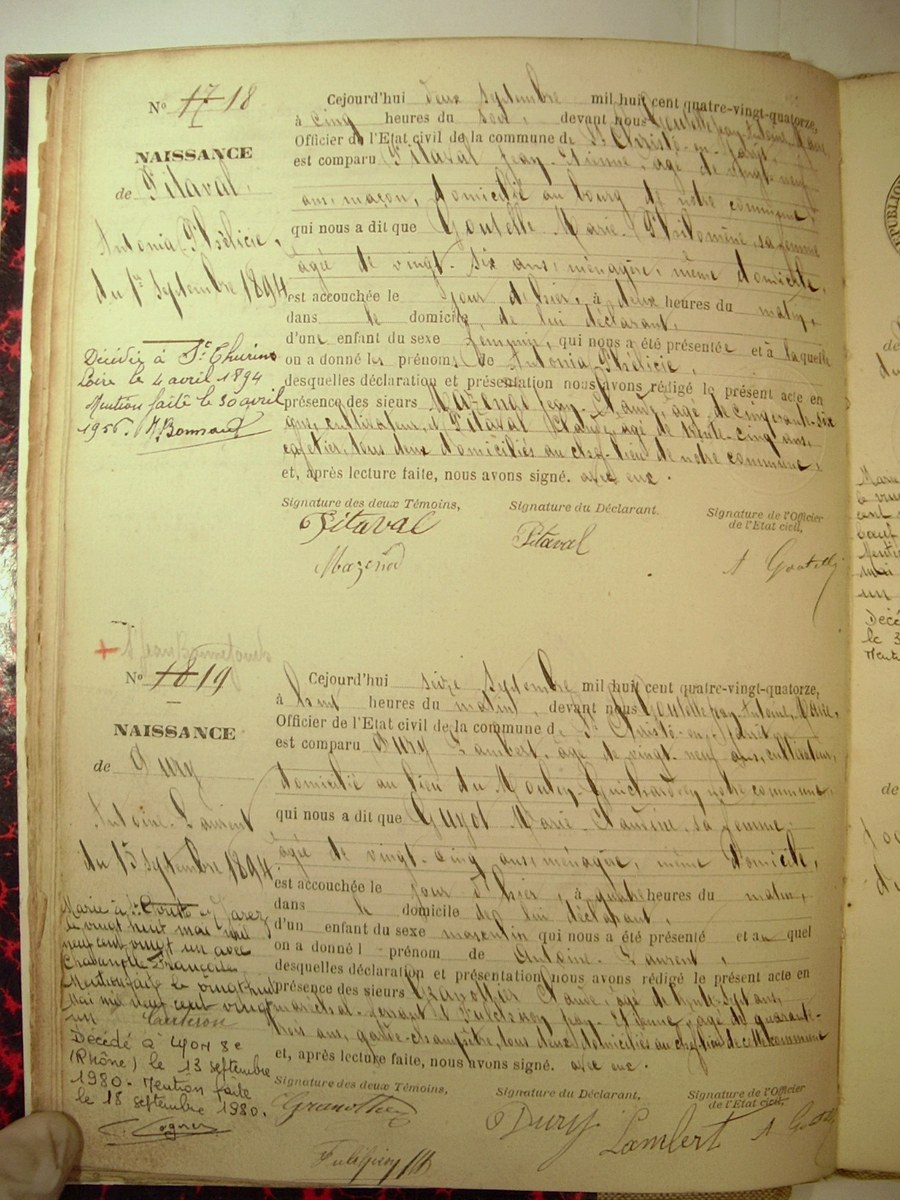 N° 17 18
NAISSANCE
de Pitaval
Antonia Phélicie,
du 1er Septembre 1894
Décédée à St Thurins
Loire le 4 avril 1894
Mention faite le 30 avril
1956.
Cejourd'hui deux Septembre mil huit cent quatre-vingt-quatorze,
à cinq heures du soir, devant nous Goutelle Jean-Antoine, Maire,
Officier de l'Etat civil de la commune de St Christo-en-Jarez,
est comparu Pitaval Jean-Etienne, âgé de vingt-neuf
ans, maçon, domicilié au bourg de notre commune,
qui nous a dit que Goutelle Marie-Philomène, sa femme
âgée de vingt-six ans, ménagère, même domicile,
est accouchée le jour de hier, à deux heures du matin,
dans le domicile, de lui déclarant,
d'une enfant du sexe féminin, qui nous a été présentée et à laquelle
on a donné les prénoms de Antonia Phélicie,
desquelles déclaration et présentation nous avons rédigé le présent acte en
présence des sieurs Mazenod Jean-Claude, âgé de cinquante-six
ans, cultivateur, et Pitaval Claude, âgé de trente-cinq ans,
cafetier, tous deux domiciliés au chef-lieu de notre commune,
et, après lecture faite, nous avons signé. avec eux.
Signature des deux Témoins, Signature du Déclarant. Signature de l'Officier
de l'Etat civil,
Pitaval Pitaval
Mazenod A Goutelle
N° 18 19
NAISSANCE
de Dury
Antoine-Laurent
du 15 Septembre 1894
Marié à St Christo-en-Jarez
le vingt huit mai mil
neuf cent vingt un avec
Françoise
Mention faite le vingt-huit
mai mil neuf cent vingt
un
Décédé à LYON 8e
(Rhône) le 13 septembre
1980. Mention faite
le 18 septembre 1980.
Cejourd'hui seize Septembre mil huit cent quatre-vingt-quatorze,
à huit heures du matin, devant nous Goutelle Jean-Antoine, Maire,
Officier de l'Etat civil de la commune de St Christo-en-Jarez,
est comparu Dury Lambert, âgé de vingt-neuf ans, cultivateur,
domicilié au lieu du notre commune,
qui nous a dit que Guyot Marie-Claudine, sa femme,
âgée de vingt-cinq ans, ménagère, même domicile,
est accouchée le jour d'hier, à quatre heures du matin,
dans le domicile de lui déclarant,
d'un enfant du sexe masculin qui nous a été présenté et au quel
on a donné l prénom de Antoine-Laurent,
desquelles déclaration et présentation nous avons rédigé le présent acte en
présence des sieurs Granottier Claude, âgé de trente-sept ans,
maréchal-ferrant et Jean-Etienne, âgé de quarante-
trois ans, garde-champêtre, tous deux domiciliés au chef-lieu de cette commune
et, après lecture faite, nous avons signé. avec eux.
Signature des deux Témoins, Signature du Déclarant, Signature de l'Officier
de l'Etat civil,
Granottier Dury Lambert A Goutelle